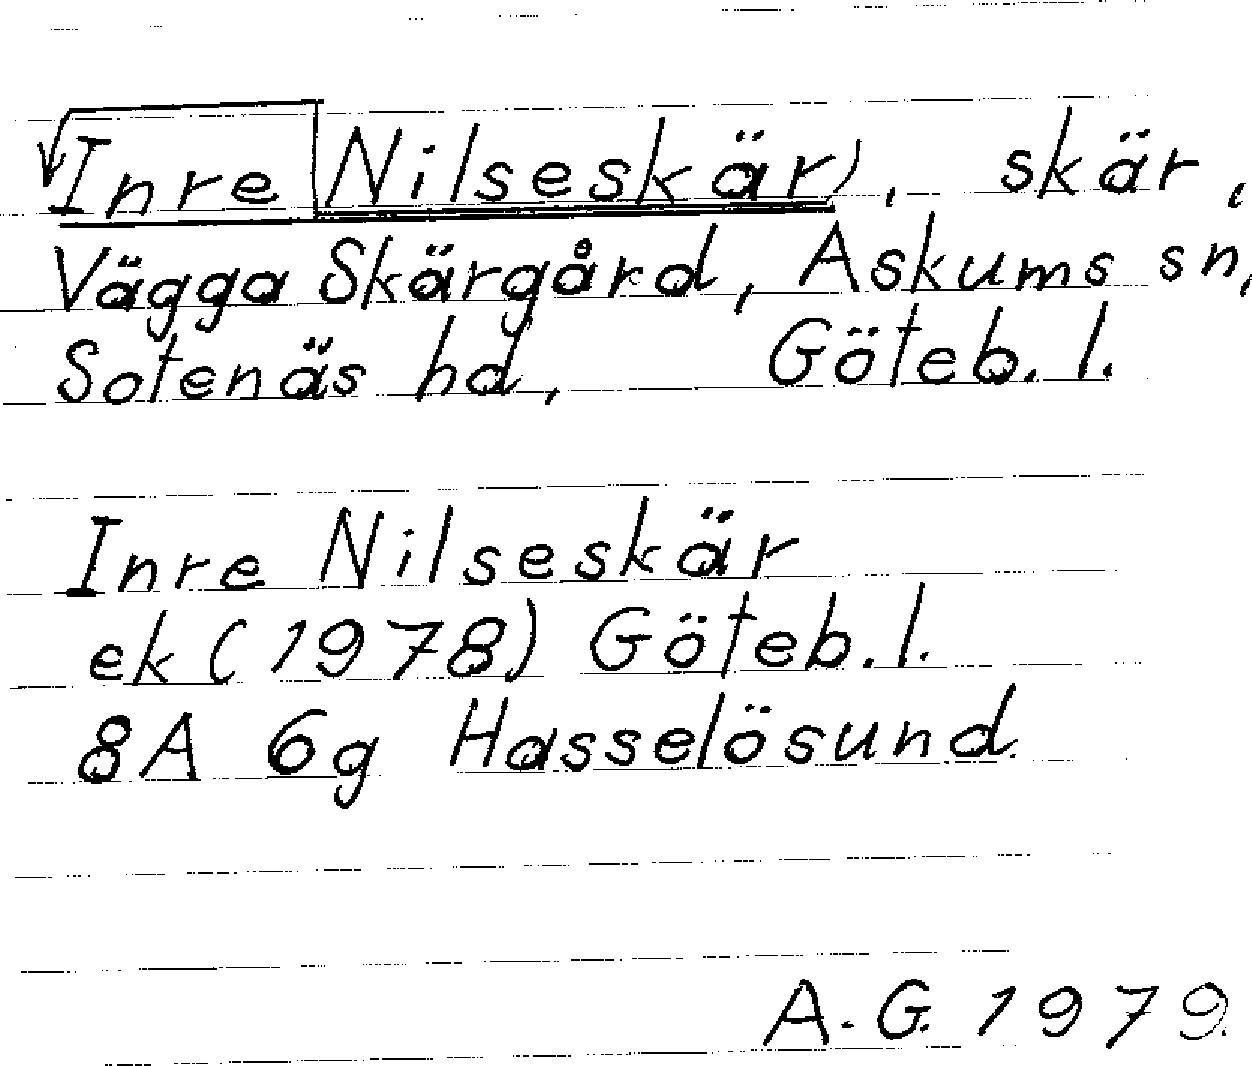 Inre Nilseskär), skär,
Vägga Skärgård, Askums sn,
Sotenäs hd, Göteb. l.
Inre Nilseskär
ek (1978) Göteb. l.
8A 6g Hasselösund.
A. G. 1979.